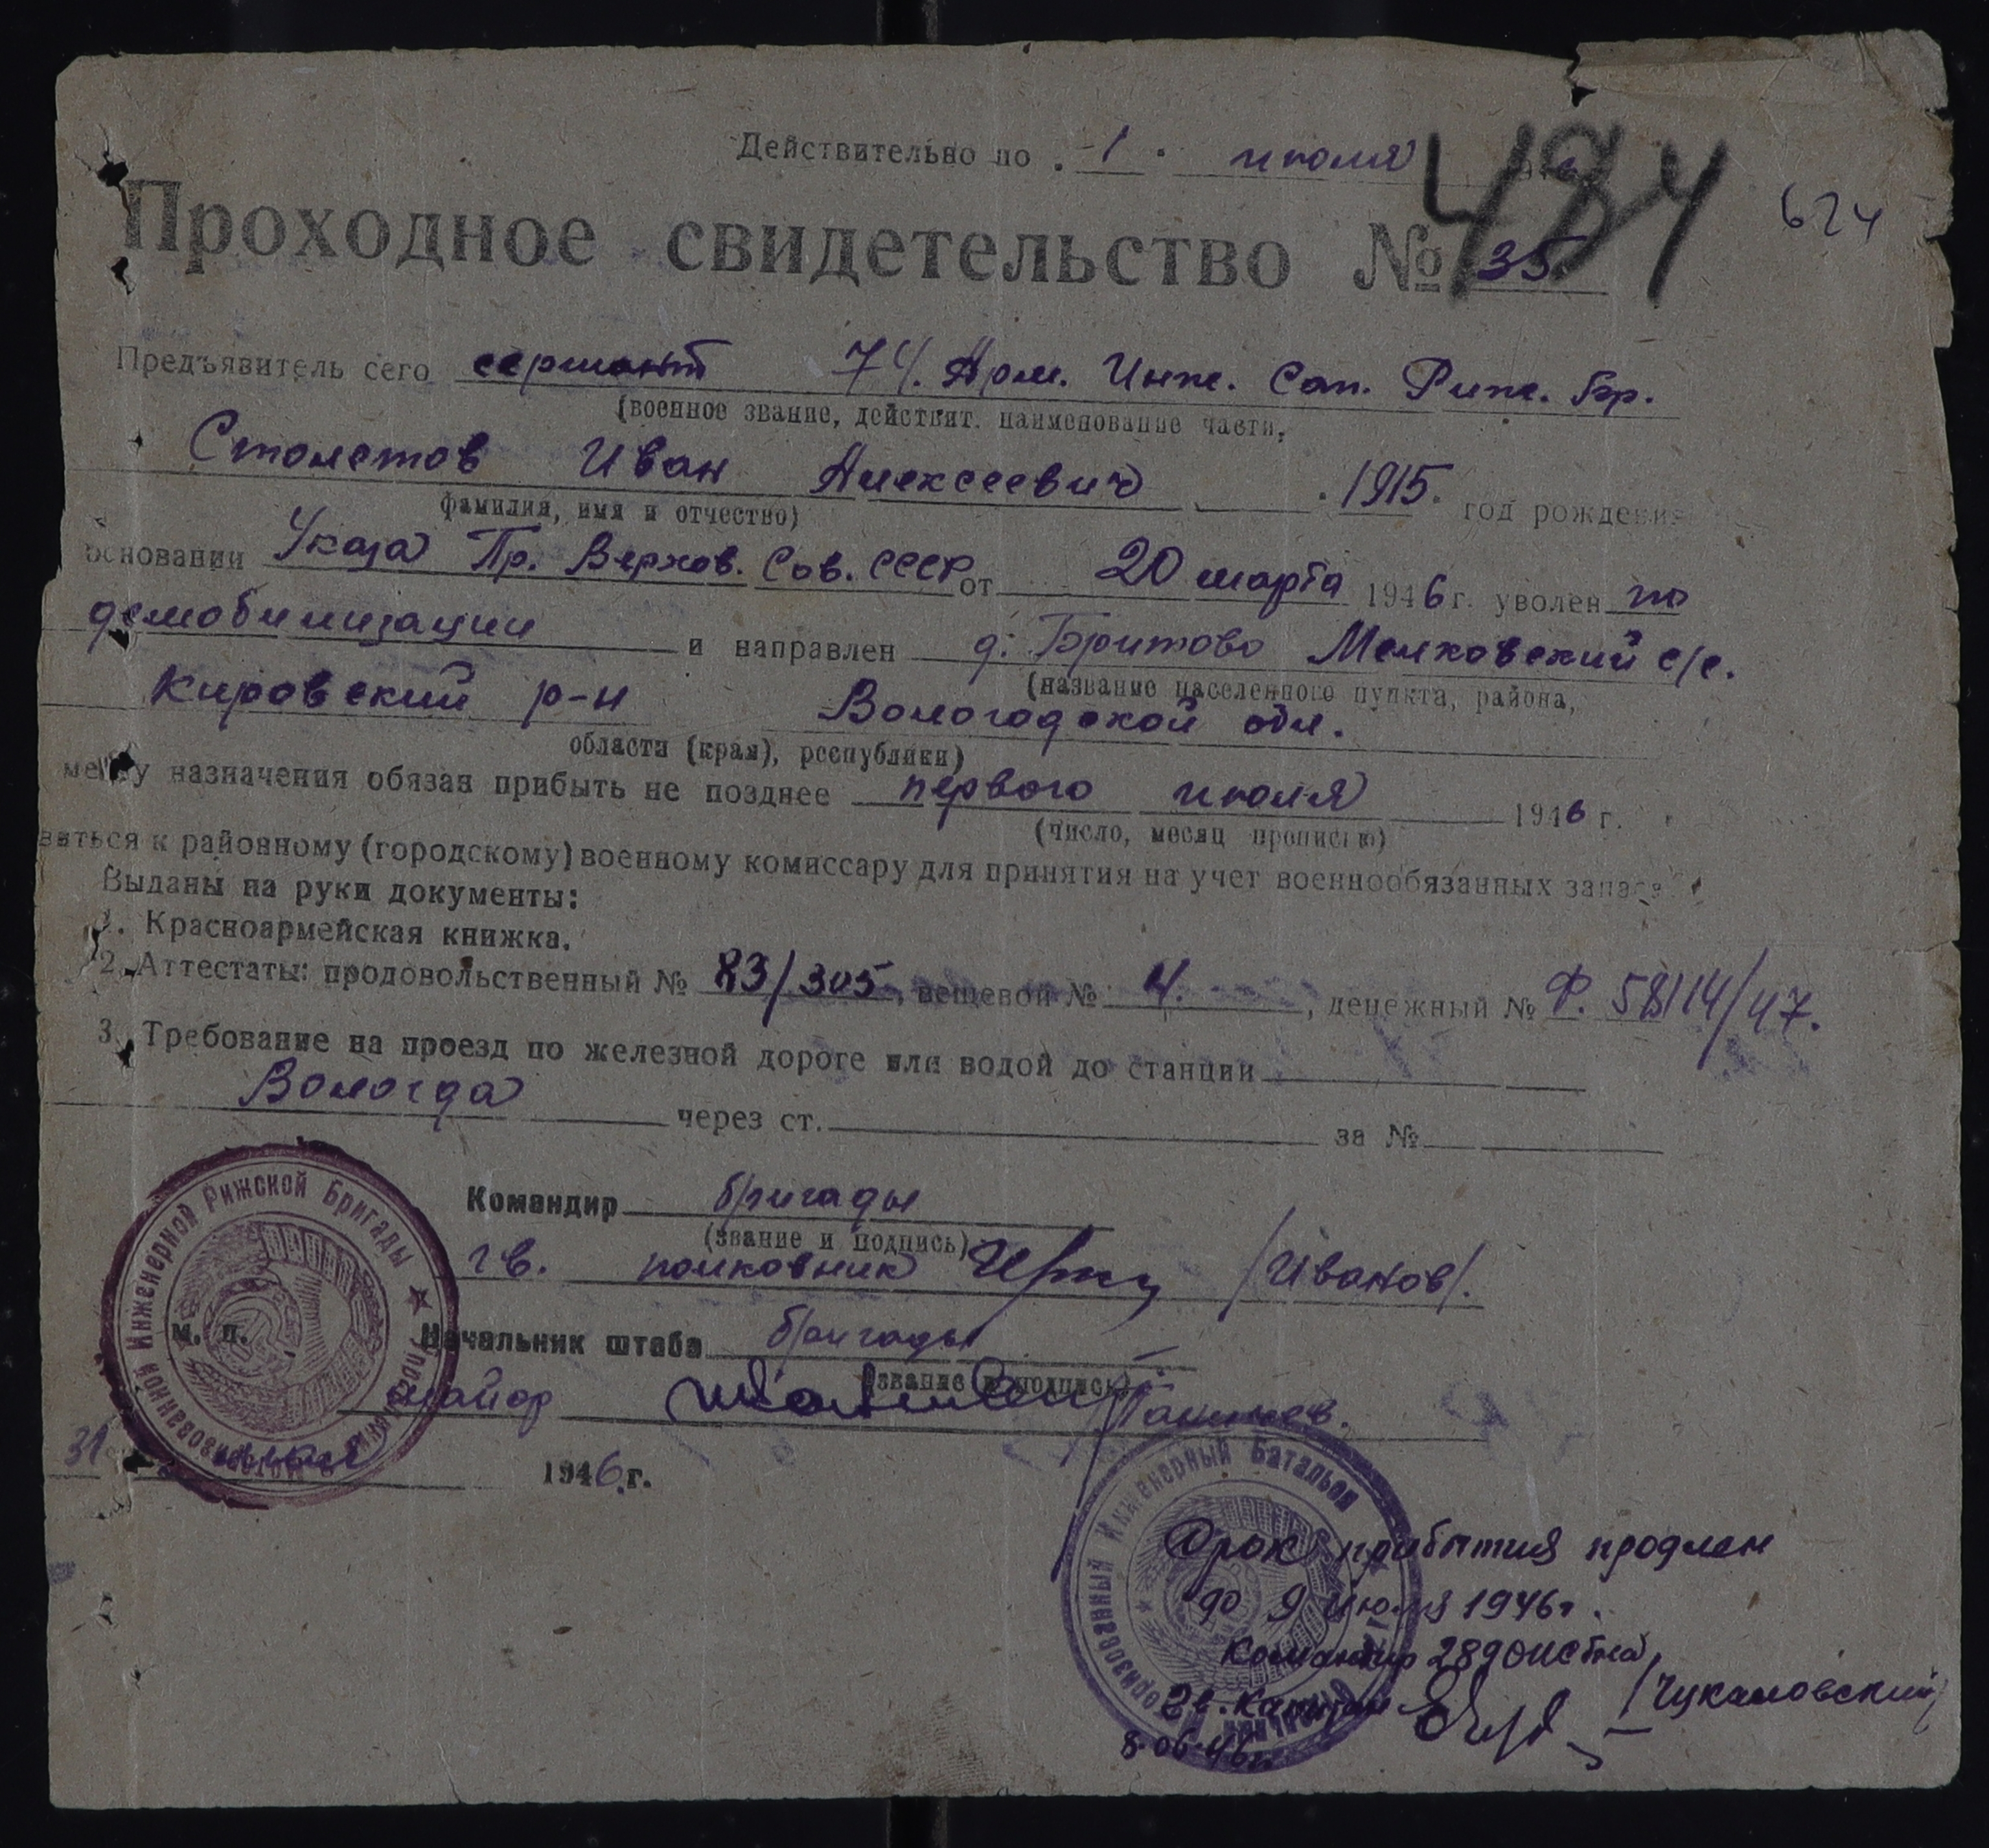 Действительно по . 1 . июля
484
624
Проходное свидетельство № 35
Предъявитель сего сержант 74. Арм. Инж. Сап. Риж. Бр.
(военное звание, действит. наименование части,
Столетов Иван Алексеевич . 1915. год рождения
фамилия, имя и отчество)
основании Указа Пр. Верхов. Сов. СССР от 20 марта 1946 г. уволен по
демобилизации и направлен д. Бритово Мелховский с/с.
(название населенного пункта, района,
Кировский р-н Вологодской обл.
области (края), республики)
месту назначения обязан прибыть не позднее первого июля 1946 г.
(число, месяц прописью)
виться к районному (городскому) военному комиссару для принятия на учет военнообязанных запаса
Выданы на руки документы:
1. Красноармейская книжка.
2. Аттестаты: продовольственный № 83/305, вещевой № 4. , денежный № Ф. 58114/47.
3. Требование на проезд по железной дороге или водой до станции
Вологда через ст. за №
Командир бригады
(звание и подпись)
гв. полковник /Иванов/.
Начальник штаба бригады
(звание и подпись)
майор
м. п.
31 1946 г.
Инженерной Рижской Бригады
Инженерный Батальон
Срок прибытия продлен
до 9 июля 1946г.
Командир 289
гв. Капитан /Чукаловский/
8.06.46г.